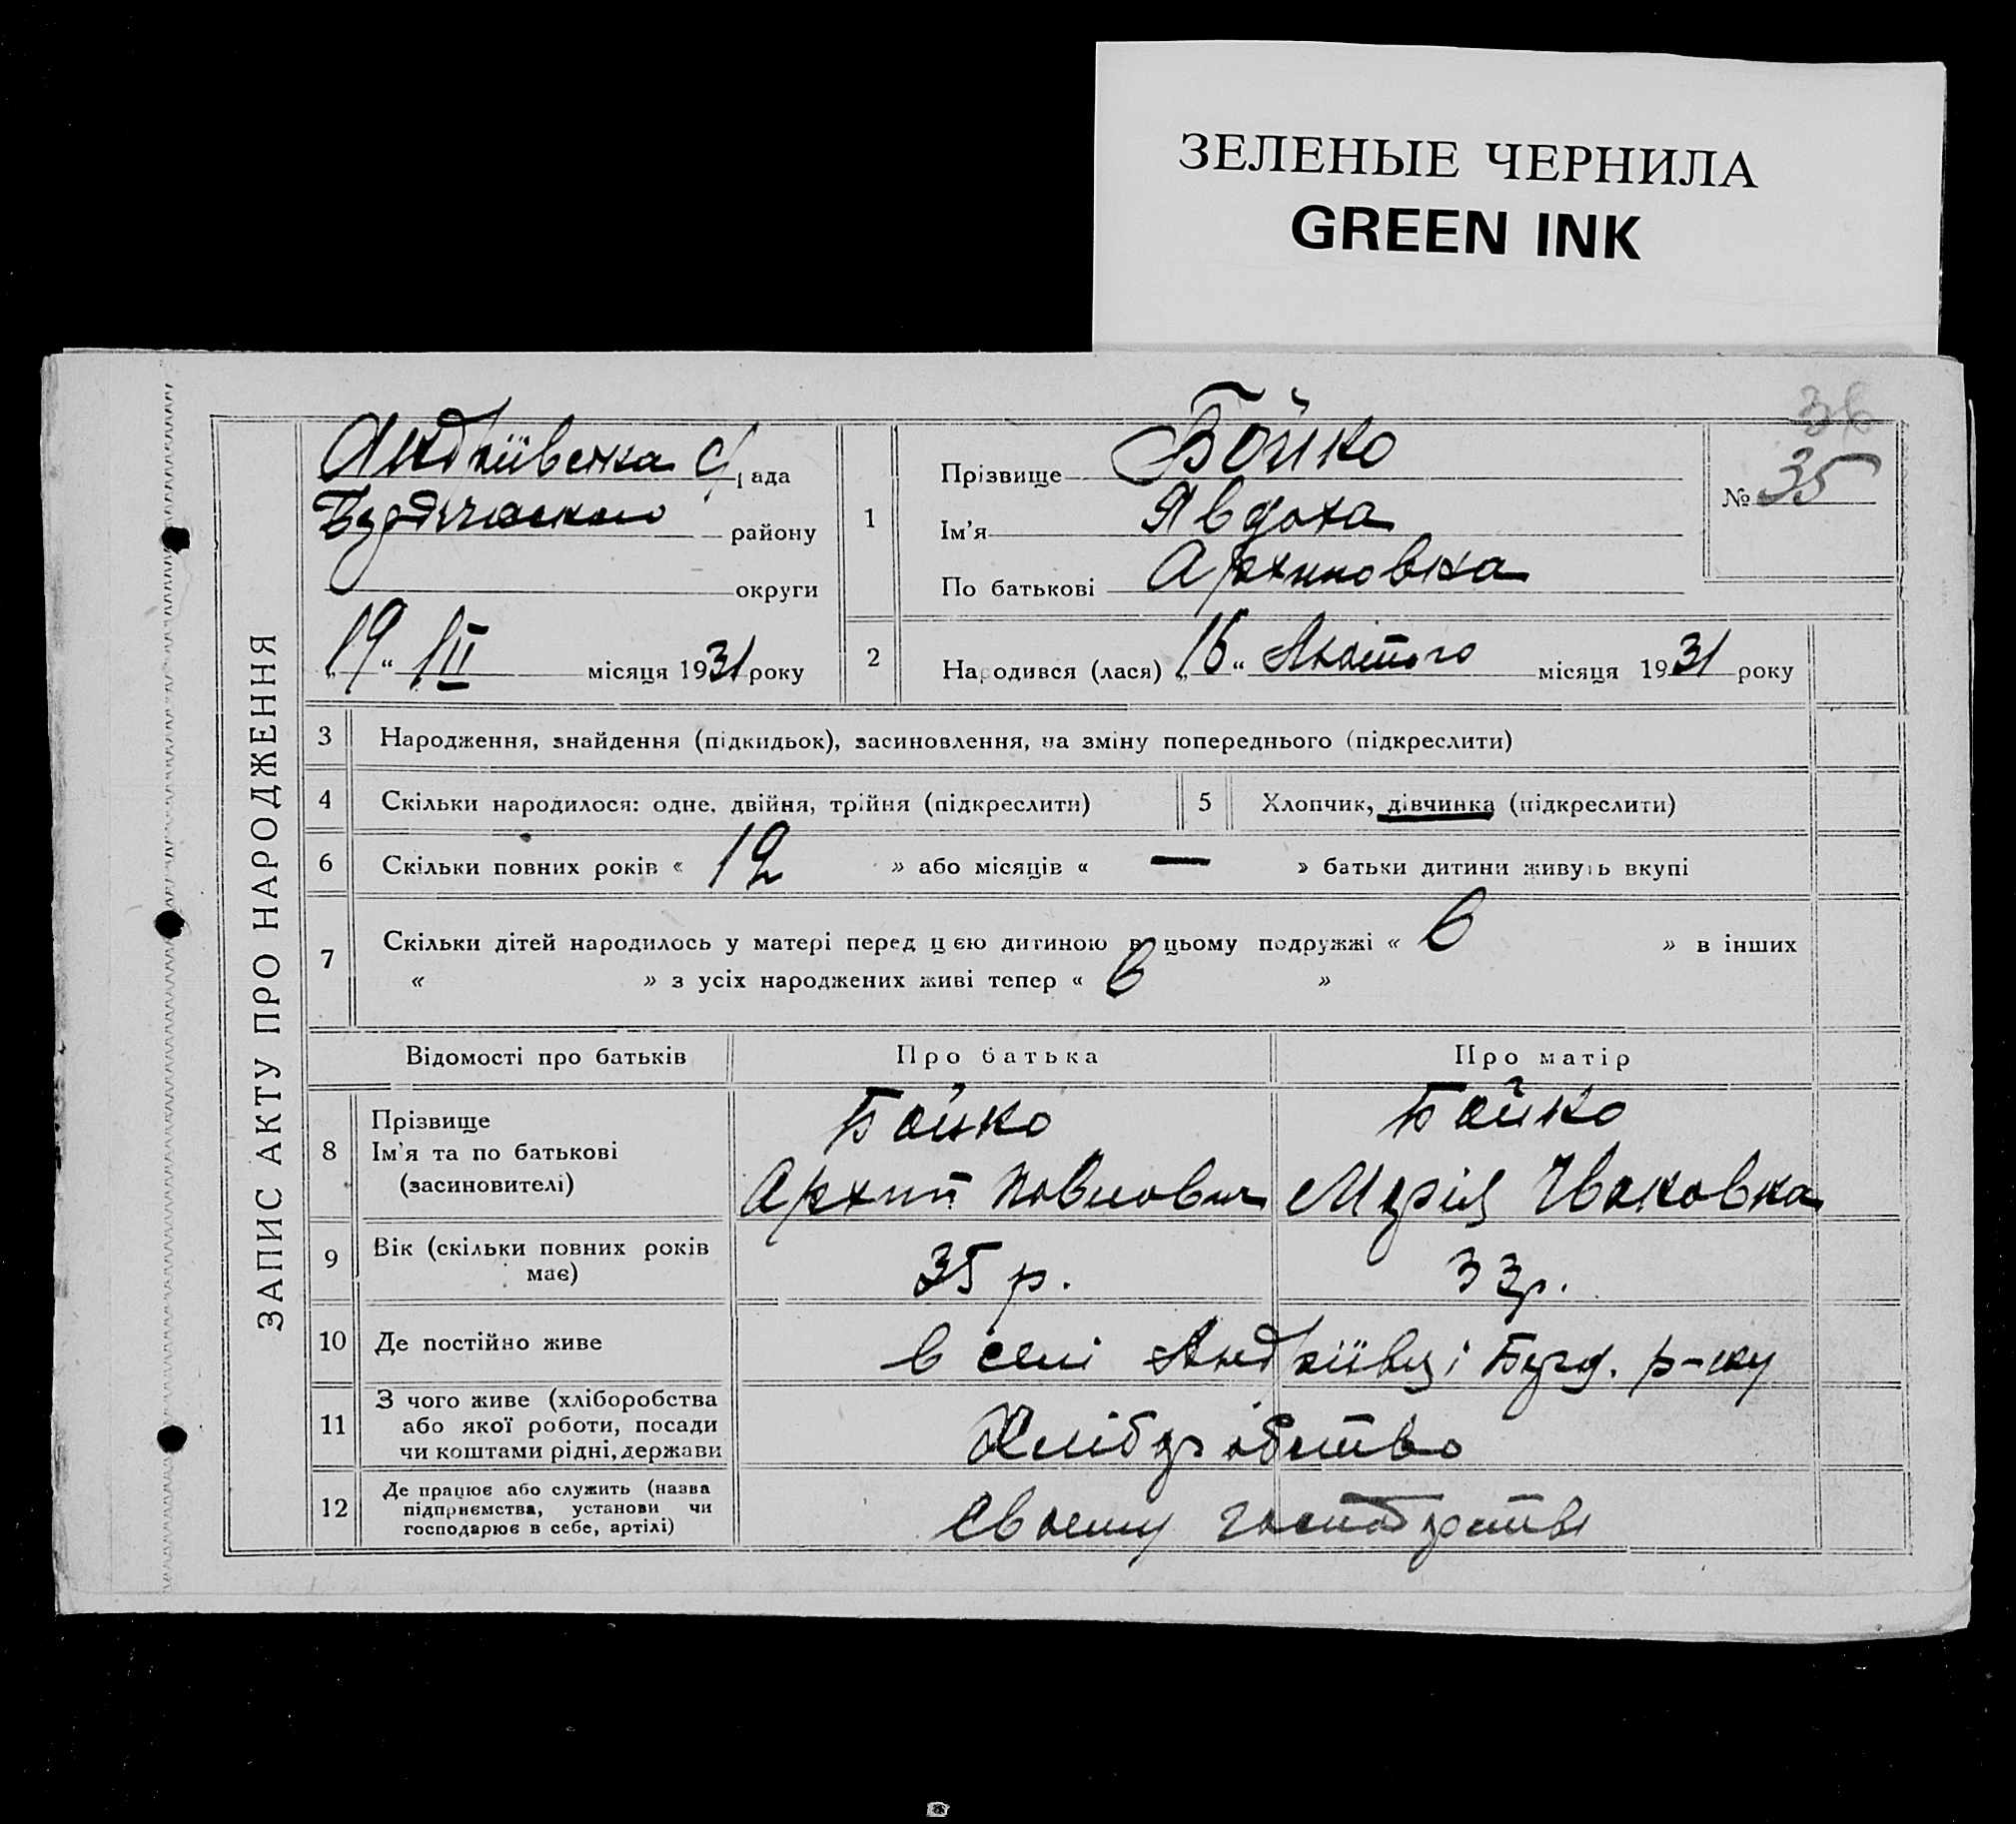 ЗЕЛЕНЫЕ ЧЕРНИЛА
GREEN INK
36
ЗАПИС АКТУ ПРО НАРОДЖЕННЯ
Андріївська с/рада
району
округи
„19“ III місяця 1931 року
1
Прізвище Бойко
Ім'я Явдоха
По батькові Архиповна
№ 35
2
Народився (лася) „16“ Лютого місяця 1931 року
3 Народження, знайдення (підкидьок), засиновлення, на зміну попереднього (підкреслити)
4 Скільки народилося: одне, двійня, трійня (підкреслити)
5 Хлопчик, дівчинка (підкреслити)
6 Скільки повних років « 12 » або місяців « — » батьки дитини живуть вкупі
7 Скільки дітей народилось у матері перед цією дитиною в цьому подружжі « 6 » в інших
« » з усіх народжених живі тепер « 6 »
Відомості про батьків Про батька Про матір
8 Прізвище
Ім'я та по батькові
(засиновителі)
Бойко
Архип
Бойко
Марія Ивановна
9 Вік (скільки повних років
має)
35 р.
33 р.
10 Де постійно живе
в селі Андріївці р-ну
11 З чого живе (хліборобства
або якої роботи, посади
чи коштами рідні, держави
Хліборобство
12 Де працює або служить (назва
підприємства, установи чи
господарює в себе, артілі)
Своєму господарстві